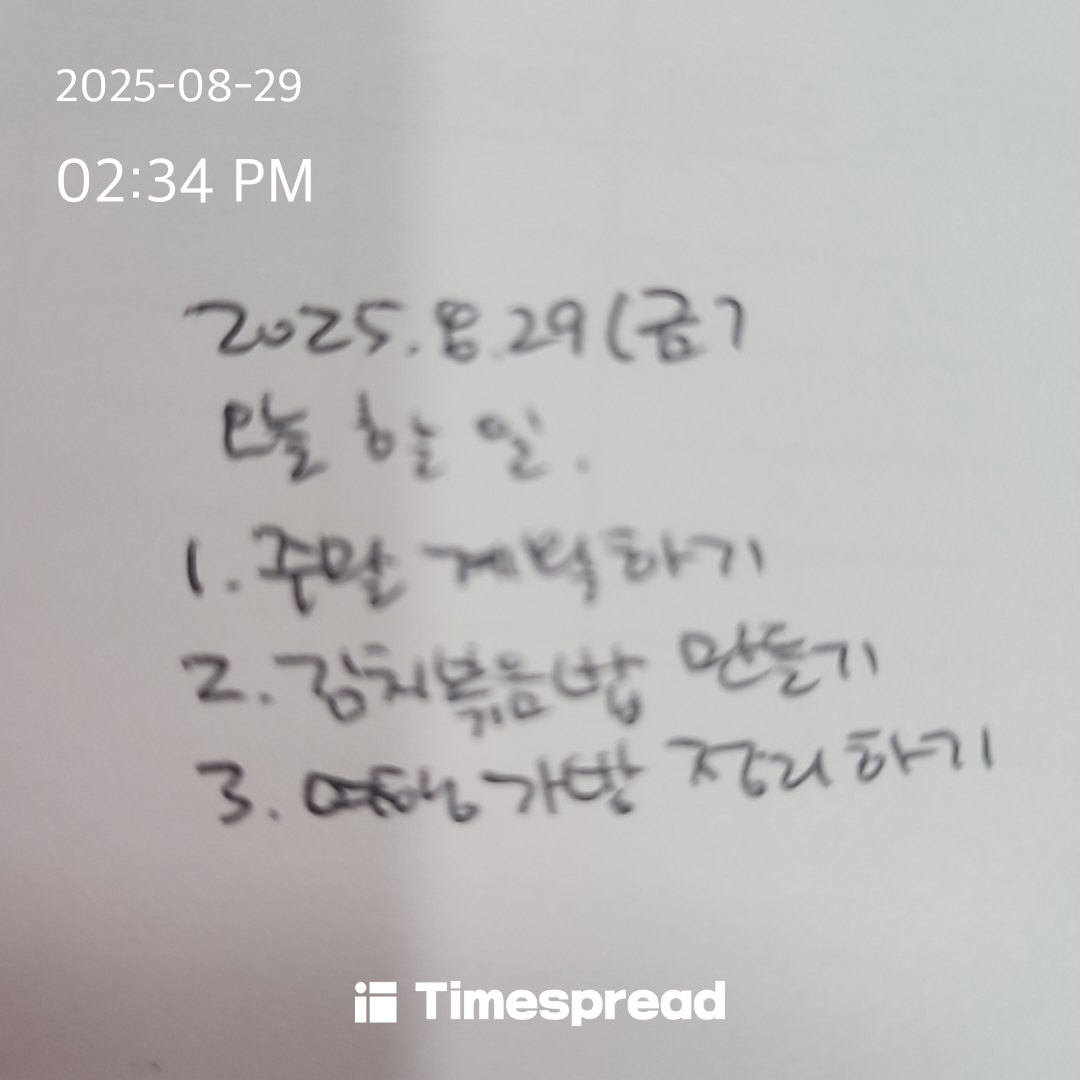 2025-08-29
02:34 PM
2025.8.29(금)
오늘 할 일.
1. 주말 계획하기
2. 김치볶음밥 만들기
3. 여행가방 정리하기
Timespread